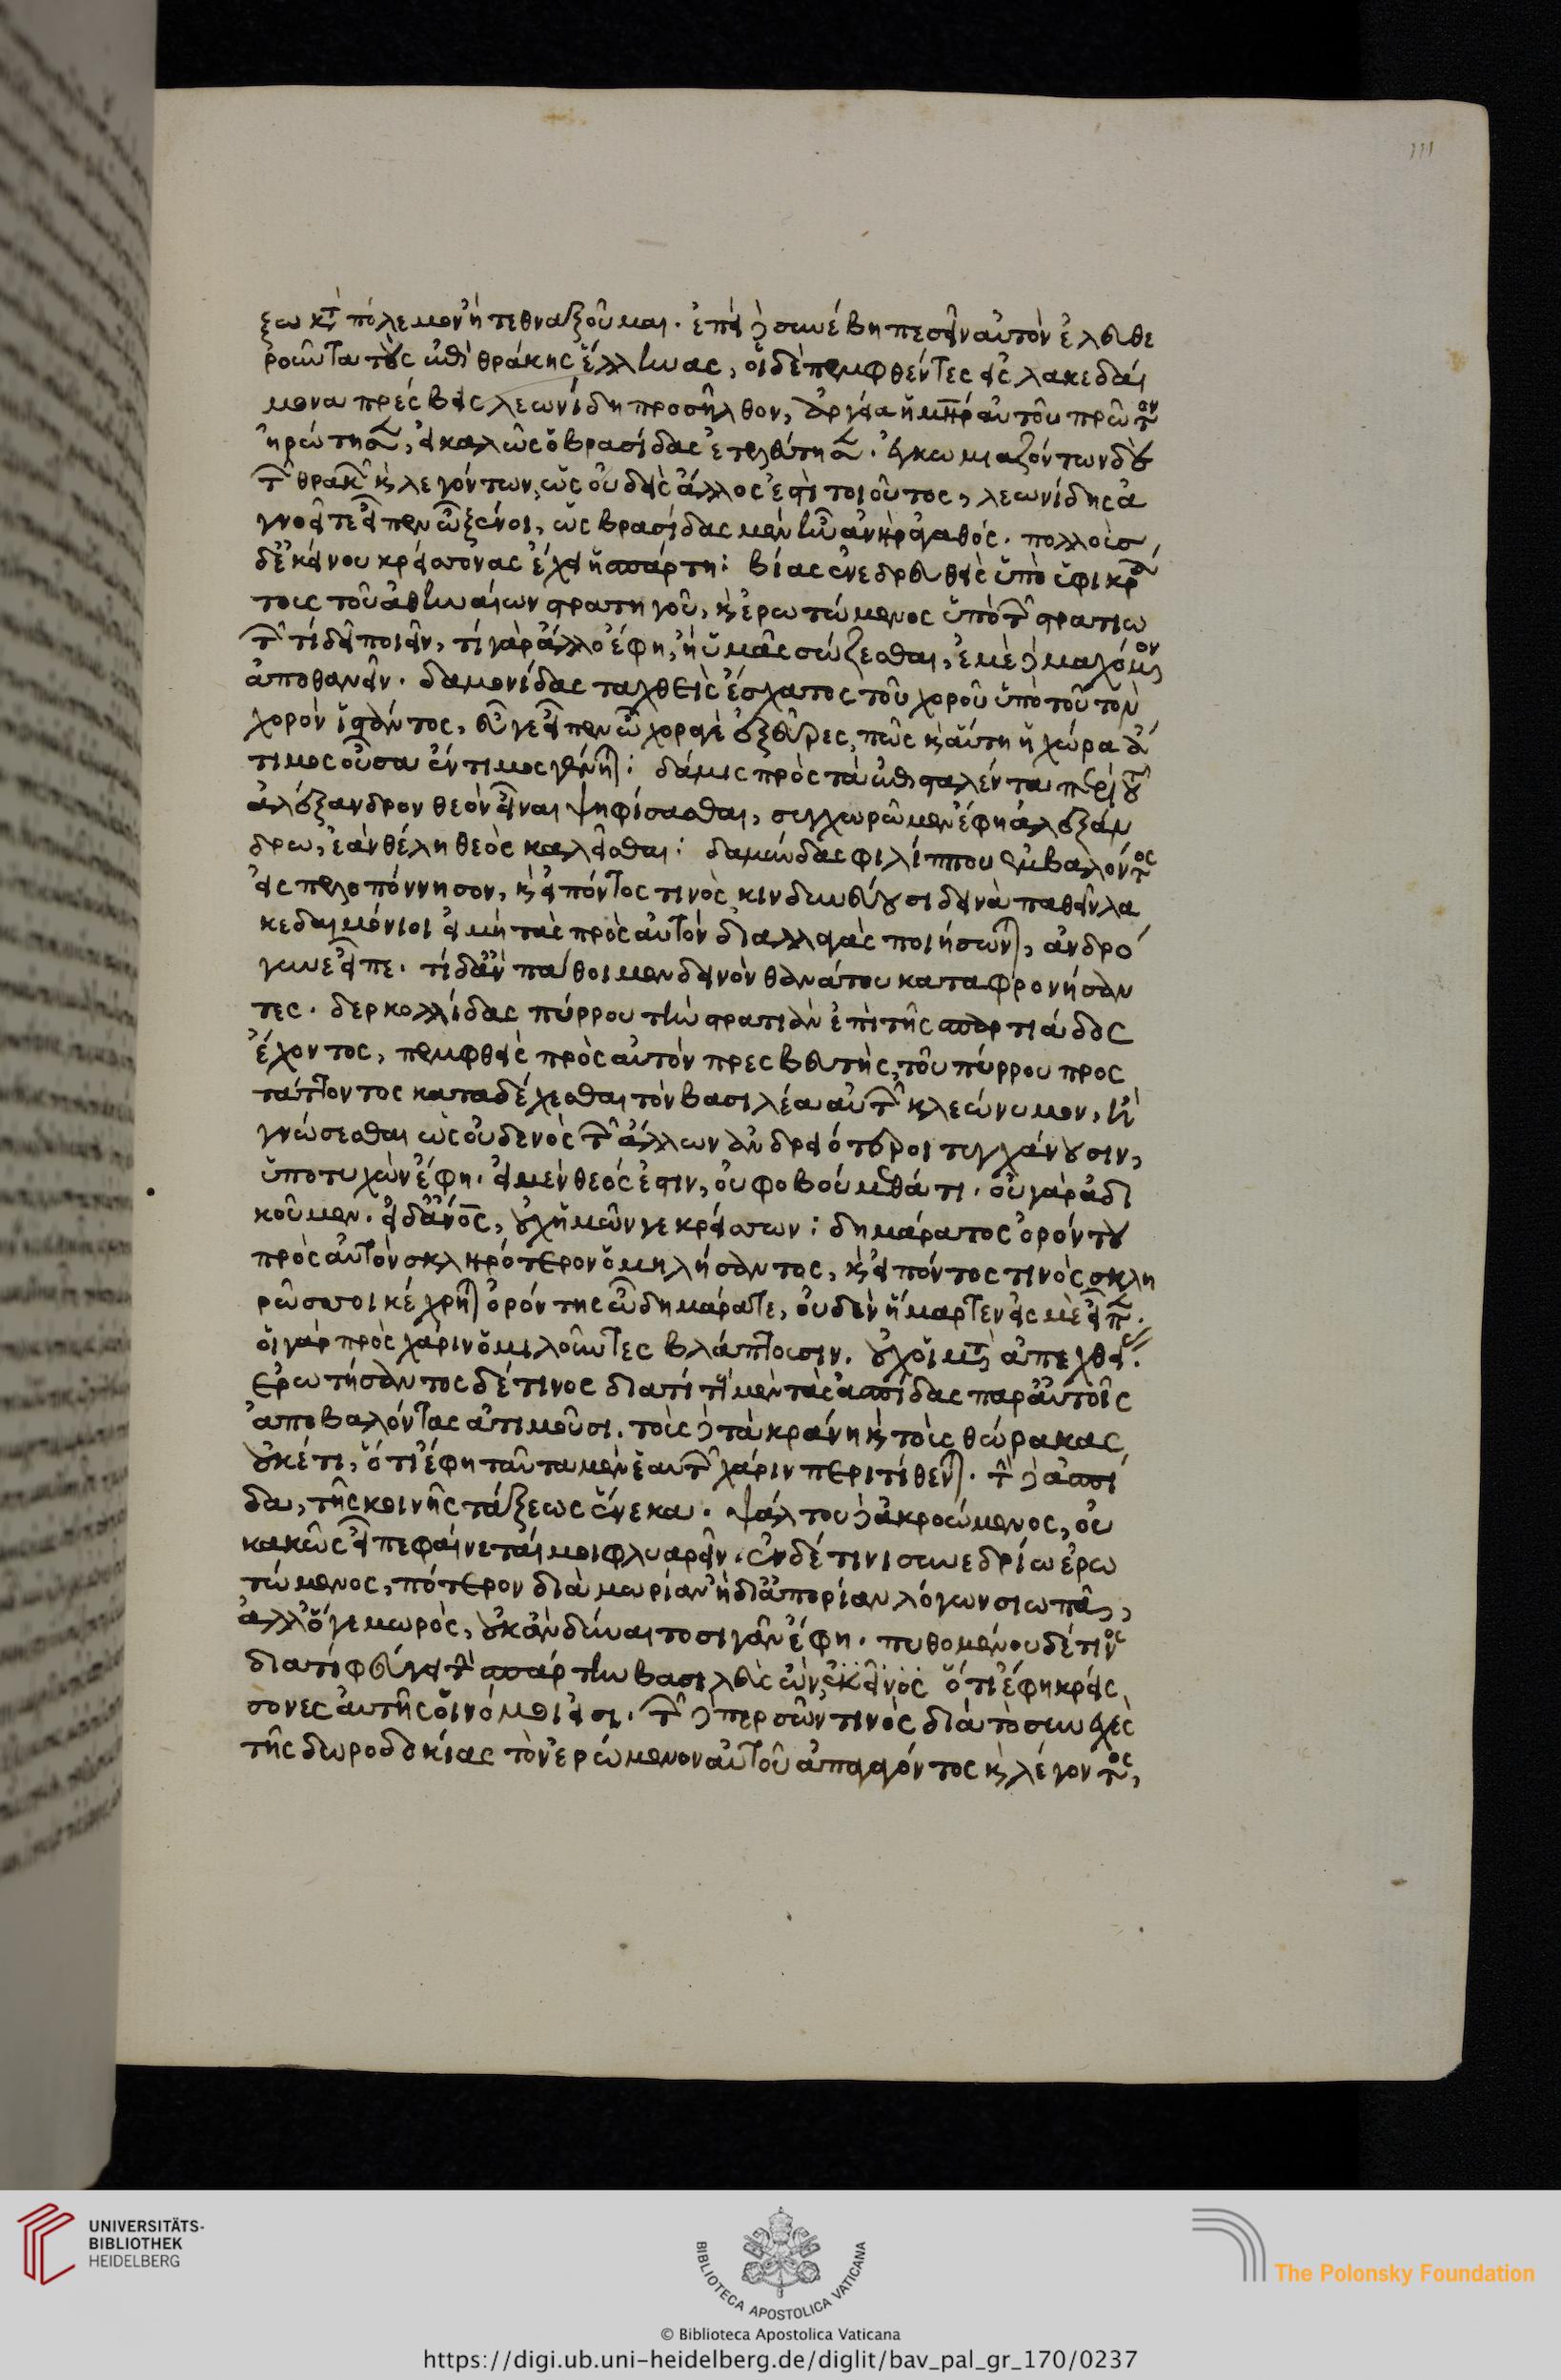 111
ξω κατὰ πόλεμον ἢ τεθναξοῦμαι. ἐπεὶ δὲ συνέβη πεσεῖν αὐτὸν ἐλευθε
ροῦντα τοὺς ἐπὶ θράκης ἕλληνας, οἱ δὲ πεμφθέντες εἰς λακεδαί
μονα πρέσβεις λεωνίδη προσῆλθον, ἀργεία ἡ μήτηρ αὐτοῦ πρῶτον
ἠρώτησεν, εἰ καλῶς ὁ βρασίδας ἐτελεύτησεν. ἐγκωμιαζόντων δὲ
τῶν θρακῶν καὶ λεγόντων, ὡς οὐδεὶς ἄλλος ἐστὶ τοιοῦτος, λεωνίδης ἀ
γνοεῖτε εἶπεν ὦ ξένοι, ὡς βρασίδας μὲν ἦν ἀνὴρ ἀγαθός. πολλοὺς
δ' ἐκείνου κρείσσονας ἔχει ἡ σπάρτη: βίας ἐνεδρευθεὶς ὑπὸ ἰφικρά
τους τοῦ ἀθηναίων στρατηγοῦ, καὶ ἐρωτώμενος ὑπὸ τῶν στρατιω
τῶν τί δεῖ ποιεῖν, τί γὰρ ἄλλο ἔφη, ἢ ὑμᾶς σώζεσθαι, ἐμὲ δὲ μαχόμενον
ἀποθανεῖν. δαμονίδας ταχθεὶς ἔσχατος τοῦ χοροῦ ὑπὸ τοῦ τὸν
χορὸν ἱστάντος, εὖ γε εἶπεν ὦ χοραγὲ ἐξεῦρες, πῶς καὶ αὕτη ἡ χώρα ἄ
τιμος οὖσα ἔντιμος γένηται: δάμις πρὸς τὰ ἐπισταλέντα περὶ τοῦ
ἀλέξανδρον θεὸν εἶναι ψηφίσασθαι, συγχωρῶμεν ἔφη ἀλεξάν
δρω, ἐὰν θέλη θεὸς καλεῖσθαι: δαμίνδας φιλίππου ἐμβαλόντος
εἰς πελοπόννησον, καὶ εἰπόντος τινὸς κινδυνεύουσι δεινὰ παθεῖν λα
κεδαιμόνιοι εἰ μὴ τὰς πρὸς αὐτὸν διαλλαγὰς ποιήσωνται, ἀνδρό
γυνε εἶπε. τί δ' ἂν πάθοιμεν δεινὸν θανάτου καταφρονήσαν
τες. δερκολλίδας πύρρου τὴν στρατιὰν ἐπὶ τῆς σπαρτιάδος
ἔχοντος, πεμφθεὶς πρὸς αὐτὸν πρεσβευτὴς, τοῦ πύρρου προς
τάττοντος καταδέχεσθαι τὸν βασιλέα αὐτῶν κλεώνυμον, ἢ
γνώσεσθαι ὡς οὐδενὸς τῶν ἄλλων ἀνδρειότεροι τυγχάνουσιν,
ὑποτυχὼν ἔφη. εἰ μὲν θεός ἐστιν, οὐ φοβούμεθά τι. οὐ γὰρ ἀδι
κοῦμεν. εἰ δ' ἄνθρωπος, οὐχ ἡμῶν γε κρείσσων: δημάρατος ὀρόντου
πρὸς αὐτὸν σκληρότερον ὁμηλήσαντος, καὶ εἰπόντος τινὸς σκλη
ρῶς σοι κέχρηται ὀρόντης ὦ δημάρατε, οὐδὲν ἥμαρτεν εἰς μὲ εἶπεν.
οἱ γὰρ πρὸς χάριν ὁμιλοῦντες βλάπτουσιν. οὐχ οἱ μετὰ ἀπεχθείας.
ἐρωτήσαντος δέ τινος διατί τοὺς μὲν τὰς ἀσπίδας παρ' αὐτοῖς
ἀποβαλόντας ἀτιμοῦσι. τοὺς δὲ τὰ κράνη καὶ τοὺς θώρακας
οὐκέτι, ὅτι ἔφη ταῦτα μὲν ἑαυτῶν χάριν περιτίθενται. τὴν δὲ ἀσπί
δα, τῆς κοινῆς τάξεως ἕνεκα. ψάλτου δὲ ἀκροώμενος, οὐ
κακῶς εἶπε φαίνεταί μοι φλυαρεῖν. ἐν δέ τινι συνεδρίω ἐρω
τώμενος, πότερον διὰ μωρίαν ἢ δι' ἀπορίαν λόγων σιωπᾶ,
ἀλλ' ὅγε μωρὸς, οὐκ ἂν δύναιτο σιγᾶν ἔφη. πυθομένου δέ τινος
διατί φεύγει τὴν σπάρτην βασιλεὺς ὢν ἐκεῖνος ὅτι ἔφη κρείς
σονες αὐτῆς οἱ νόμοι εἰσι. τῶν δὲ περσῶν τινὸς διὰ τὸ συνεχὲς
τῆς δωροδοκίας τὸν ἐρώμενον αὐτοῦ ἀποστάντος καὶ λέγοντος,
UNIVERSITÄTS-
BIBLIOTHEK
HEIDELBERG
BIBLIOTECA APOSTOLICA VATICANA
The Polonsky Foundation
© Biblioteca Apostolica Vaticana
https://digi.ub.uni-heidelberg.de/diglit/bav_pal_gr_170/0237